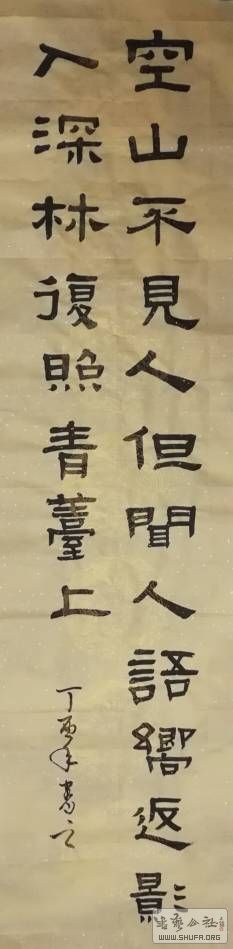 空山不見人但聞人語響返影
入深林復照青薹上
丁酉年書之
書藝公社
WWW.SHUFA.ORG